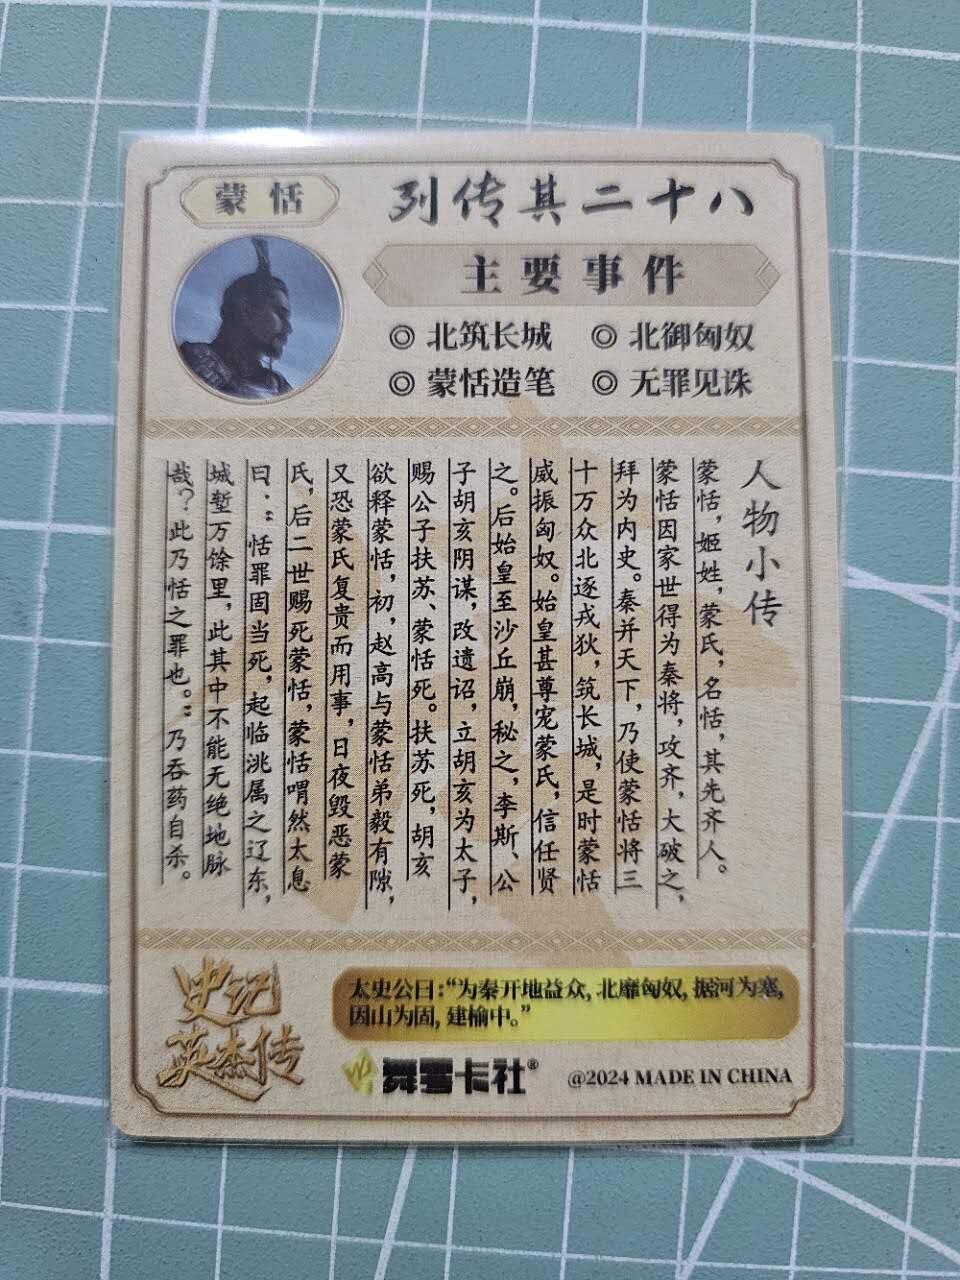 蒙恬
列传其二十八
主要事件
◎ 北筑长城 ◎ 北御匈奴
◎ 蒙恬造笔 ◎ 无罪见诛
人物小传
蒙恬，姬姓，蒙氏，名恬，其先齐人。
蒙恬因家世得为秦将，攻齐，大破之，
拜为内史。秦并天下，乃使蒙恬将三
十万众北逐戎狄，筑长城，是时蒙恬
威振匈奴。始皇甚尊宠蒙氏，信任贤
之。后始皇至沙丘崩，秘之，李斯、公
子胡亥阴谋，改遗诏，立胡亥为太子，
赐公子扶苏、蒙恬死。扶苏死，胡亥
欲释蒙恬，初，赵高与蒙恬弟毅有隙，
又恐蒙氏复贵而用事，日夜毁恶蒙
氏，后二世赐死蒙恬，蒙恬喟然太息
曰：“恬罪固当死，起临洮属之辽东，
城堑万馀里，此其中不能无绝地脉
哉？此乃恬之罪也。”乃吞药自杀。
史记
英杰传
太史公曰：“为秦开地益众，北靡匈奴，据河为塞，
因山为固，建榆中。”
舞雩卡社®
@2024 MADE IN CHINA